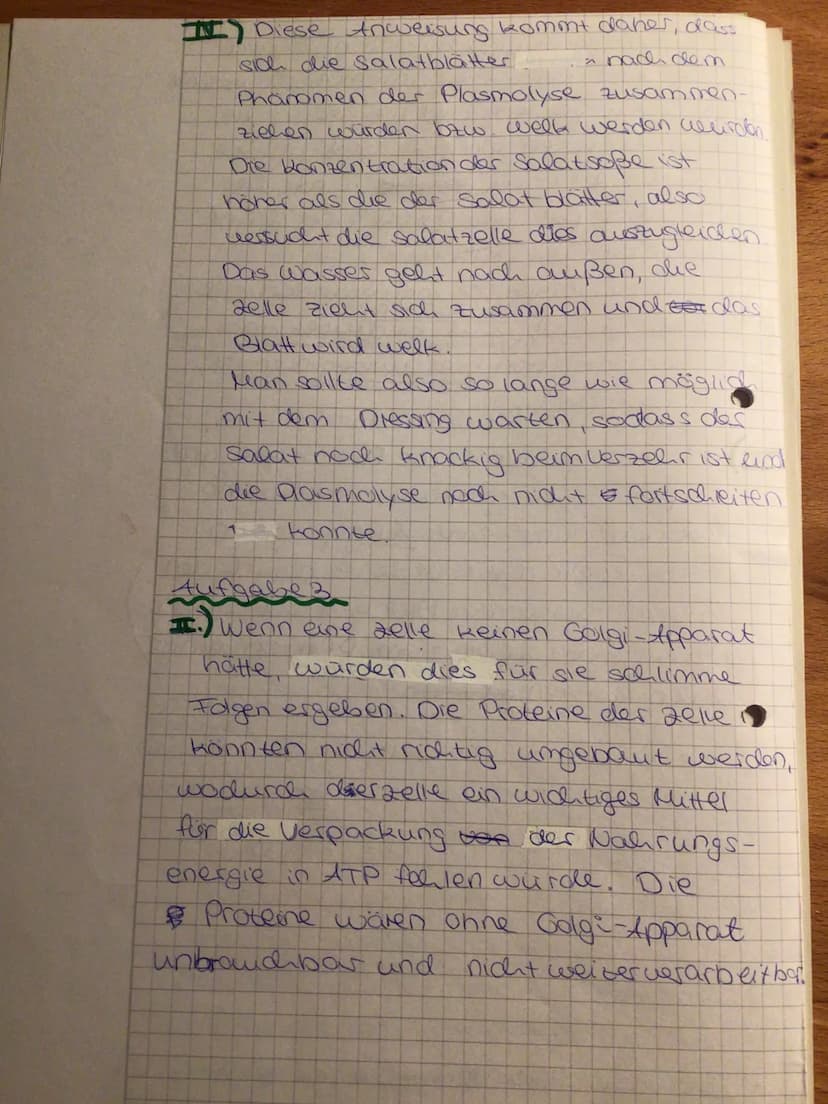 IV.) Diese Anweisung kommt daher, dass
sich die Salatblätter nach dem
Phänomen der Plasmolyse zusammen-
ziehen würden bzw. welk werden würden.
Die Konzentration der Salatsoße ist
höher als die der Salatblätter, also
versucht die Salatzelle dies auszugleichen.
Das Wasser geht nach außen, die
Zelle zieht sich zusammen und das
Blatt wird welk.
Man sollte also so lange wie möglich
mit dem Dressing warten, sodass der
Salat noch knackig beim Verzehr ist und
die Plasmolyse noch nicht fortschreiten
konnte.
Aufgabe 3
II.) Wenn eine Zelle keinen Golgi-Apparat
hätte, würden dies für sie schlimme
Folgen ergeben. Die Proteine der Zelle
könnten nicht richtig umgebaut werden,
wodurch der Zelle ein wichtiges Mittel
für die Verpackung der Nahrungs-
energie in ATP fehlen würde. Die
Proteine wären ohne Golgi-Apparat
unbrauchbar und nicht weiterverarbeitbar.